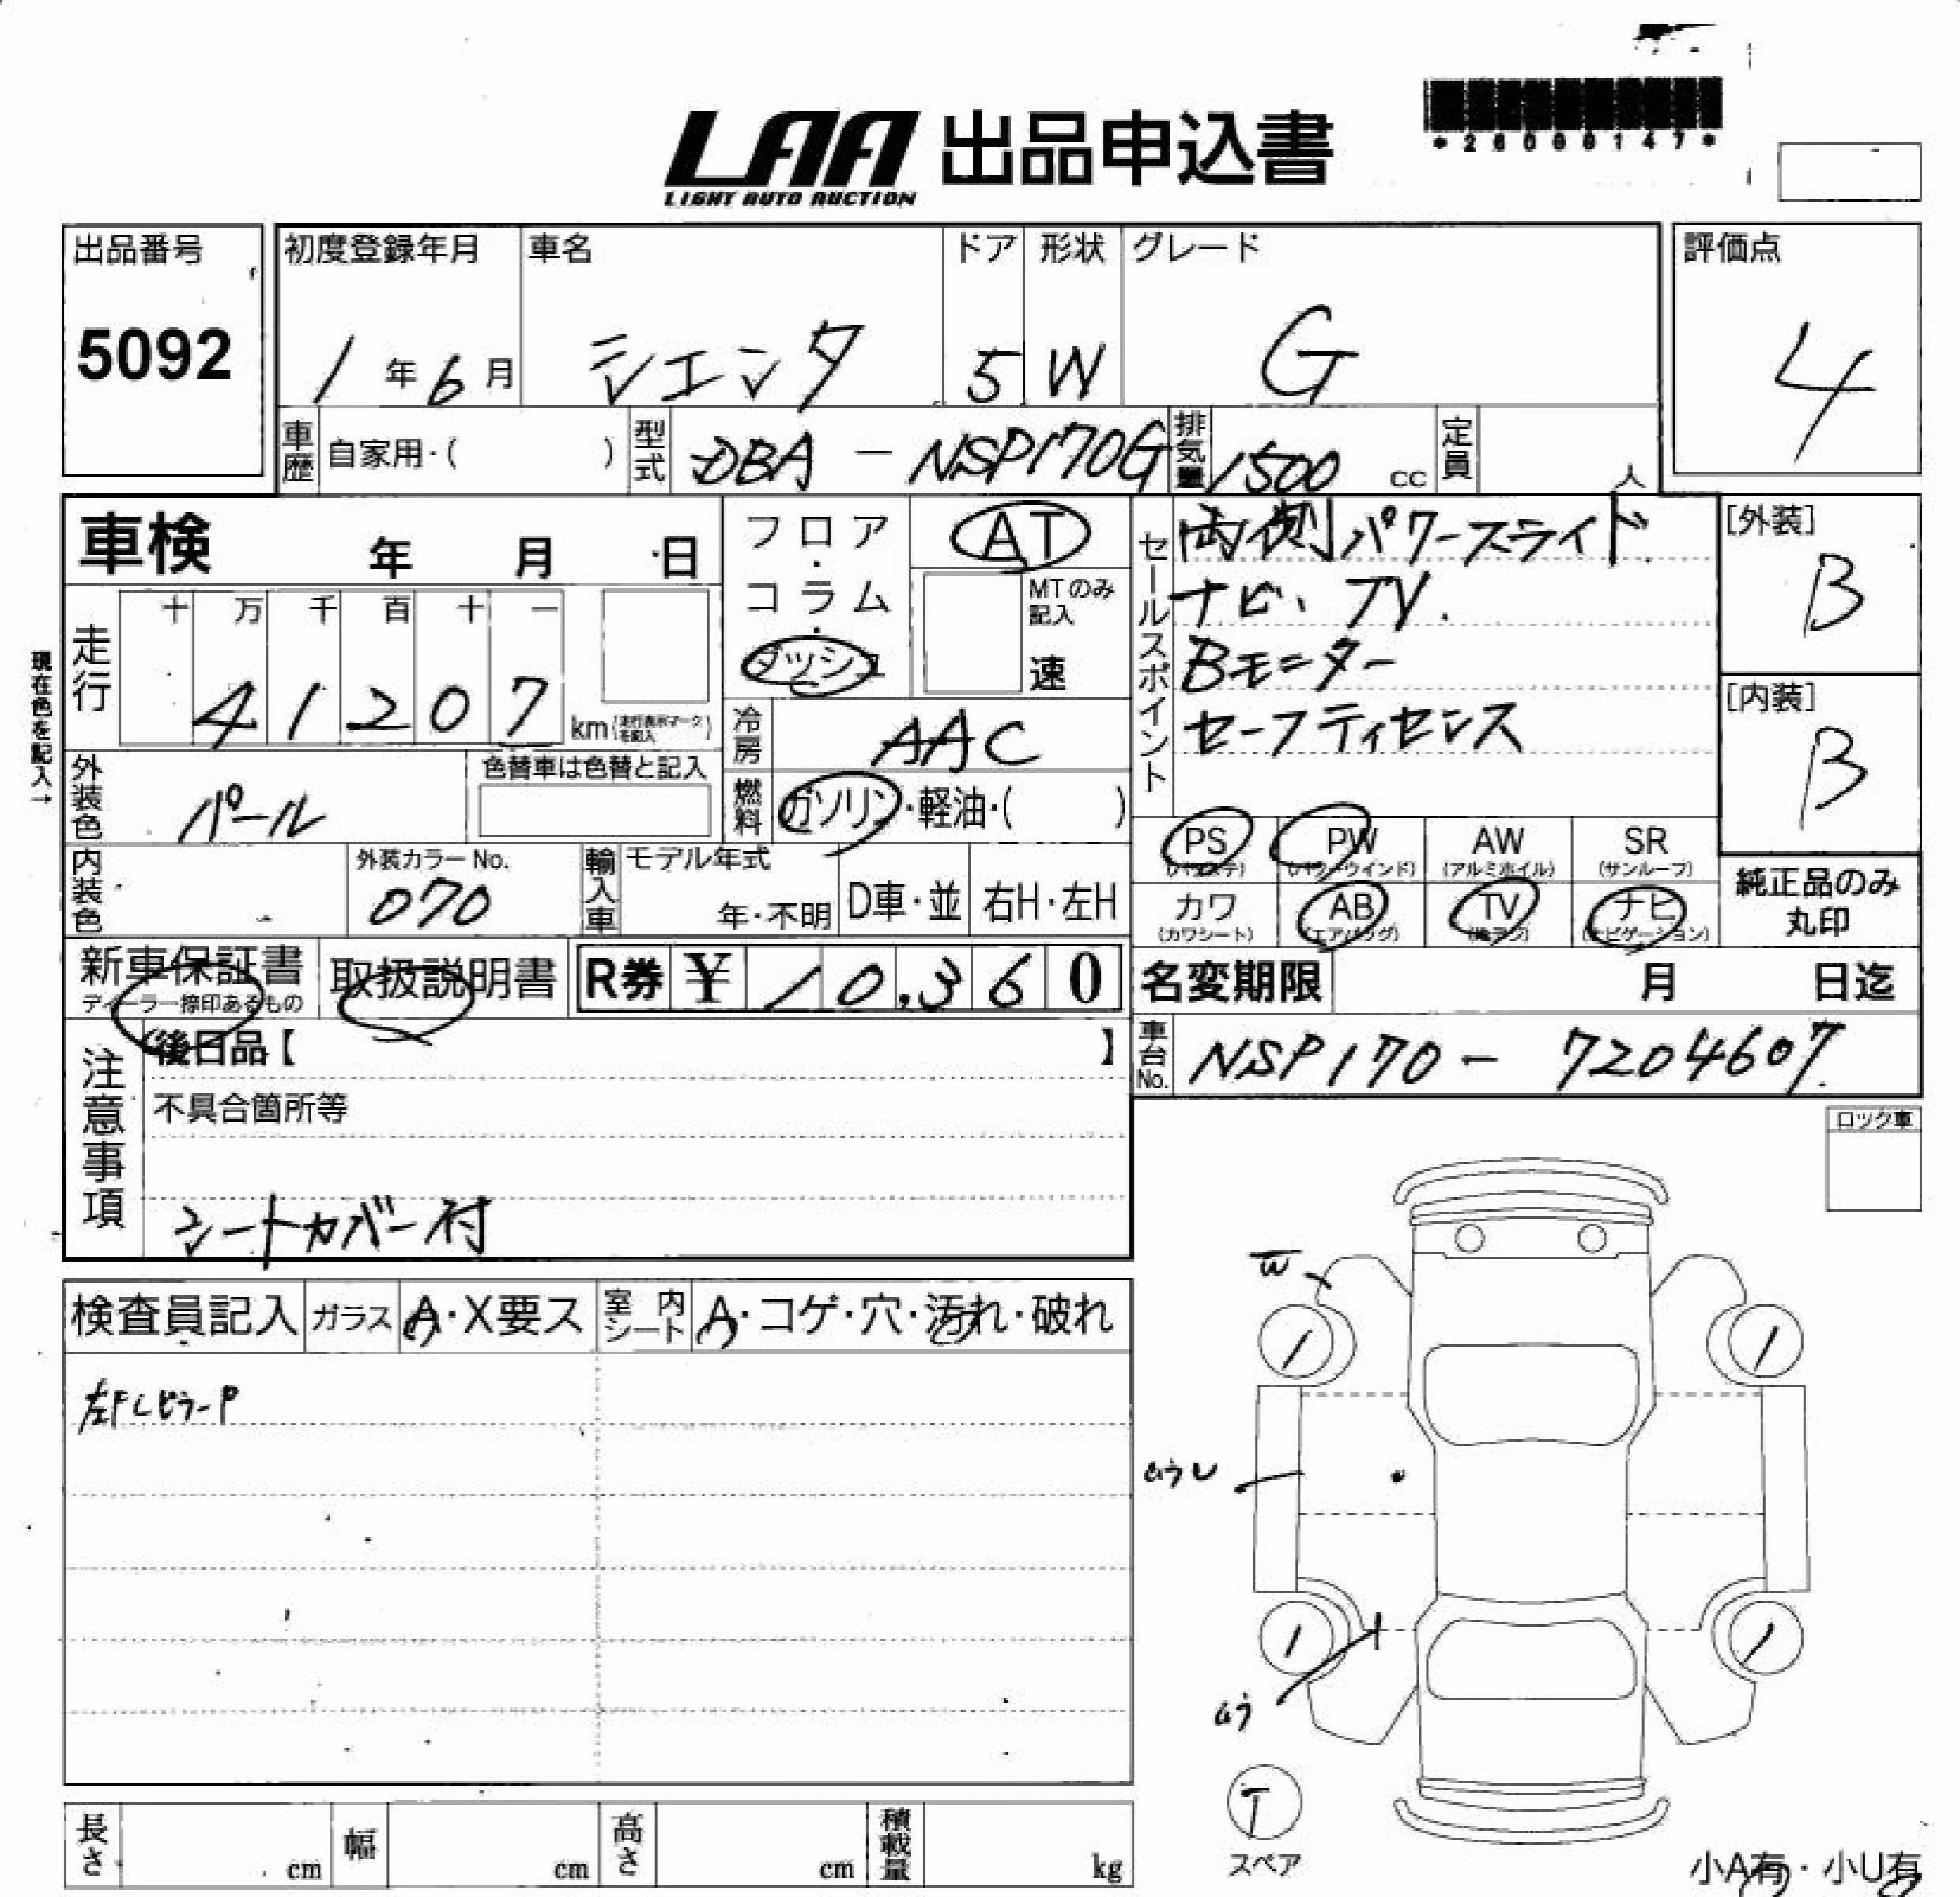 LAA 出品申込書
LIGHT AUTO AUCTION
*26000147*
出品番号 初度登録年月 車名 ドア 形状 グレード 評価点
5092 1年6月 シエンタ 5 W G 4
車歴 自家用・( ) 型式 DBA-NSP170G 排気量 1500cc 定員 人
車検 年 月 日
フロア・コラム・ダッシュ
AT
MTのみ記入
速
セールスポイント
両側パワースライド
ナビ、TV.
Bモニター
セーフティセンス
[外装]
B
[内装]
B
現在色を記入→
走行 十 万 千 百 十 一
41207 km(走行表示マークを記入)
冷房 AAC
外装色 パール
色替車は色替と記入
燃料 ガソリン・軽油・( )
PS PW AW SR
(パワステ) (パワーウインド) (アルミホイル) (サンルーフ)
カワ AB TV ナビ
(カワシート) (エアバッグ) (ナビゲーション)
純正品のみ
丸印
内装色 外装カラーNo. 070
輸入車 モデル年式 年・不明 D車・並 右H・左H
新車保証書 取扱説明書 R券 ¥ 10,360
ディーラー捺印あるもの
名変期限 月 日迄
車台No. NSP170-7204607
注意事項
後日品【 】
不具合箇所等
シートカバー付
ロック車
検査員記入 ガラス A・X要ス 室内シート A・コゲ・穴・汚れ・破れ
左FLピラーP
W
1 1
1 1
T
スペア
長さ cm 幅 cm 高さ cm 積載量 kg
小A有・小U有